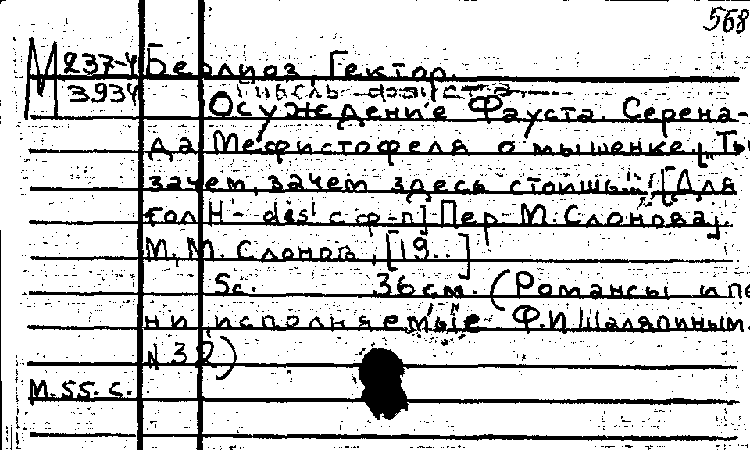 568
М 237-4 Берлиоз, Гектор.
3934 Гибель Фауста
Осуждение Фауста. Серена-
да Мефистофеля о мышенке „Ты
зачем, зачем здесь стоишь"! [Для
гол H - des' с ф-п] Пер. М. Слонова].
М., М. Слонов, [19..]
5с. 36 см. (Романсы и пе
ни, исполняемые Ф.И. Шаляпиным.
N 32)
М. 55. с.